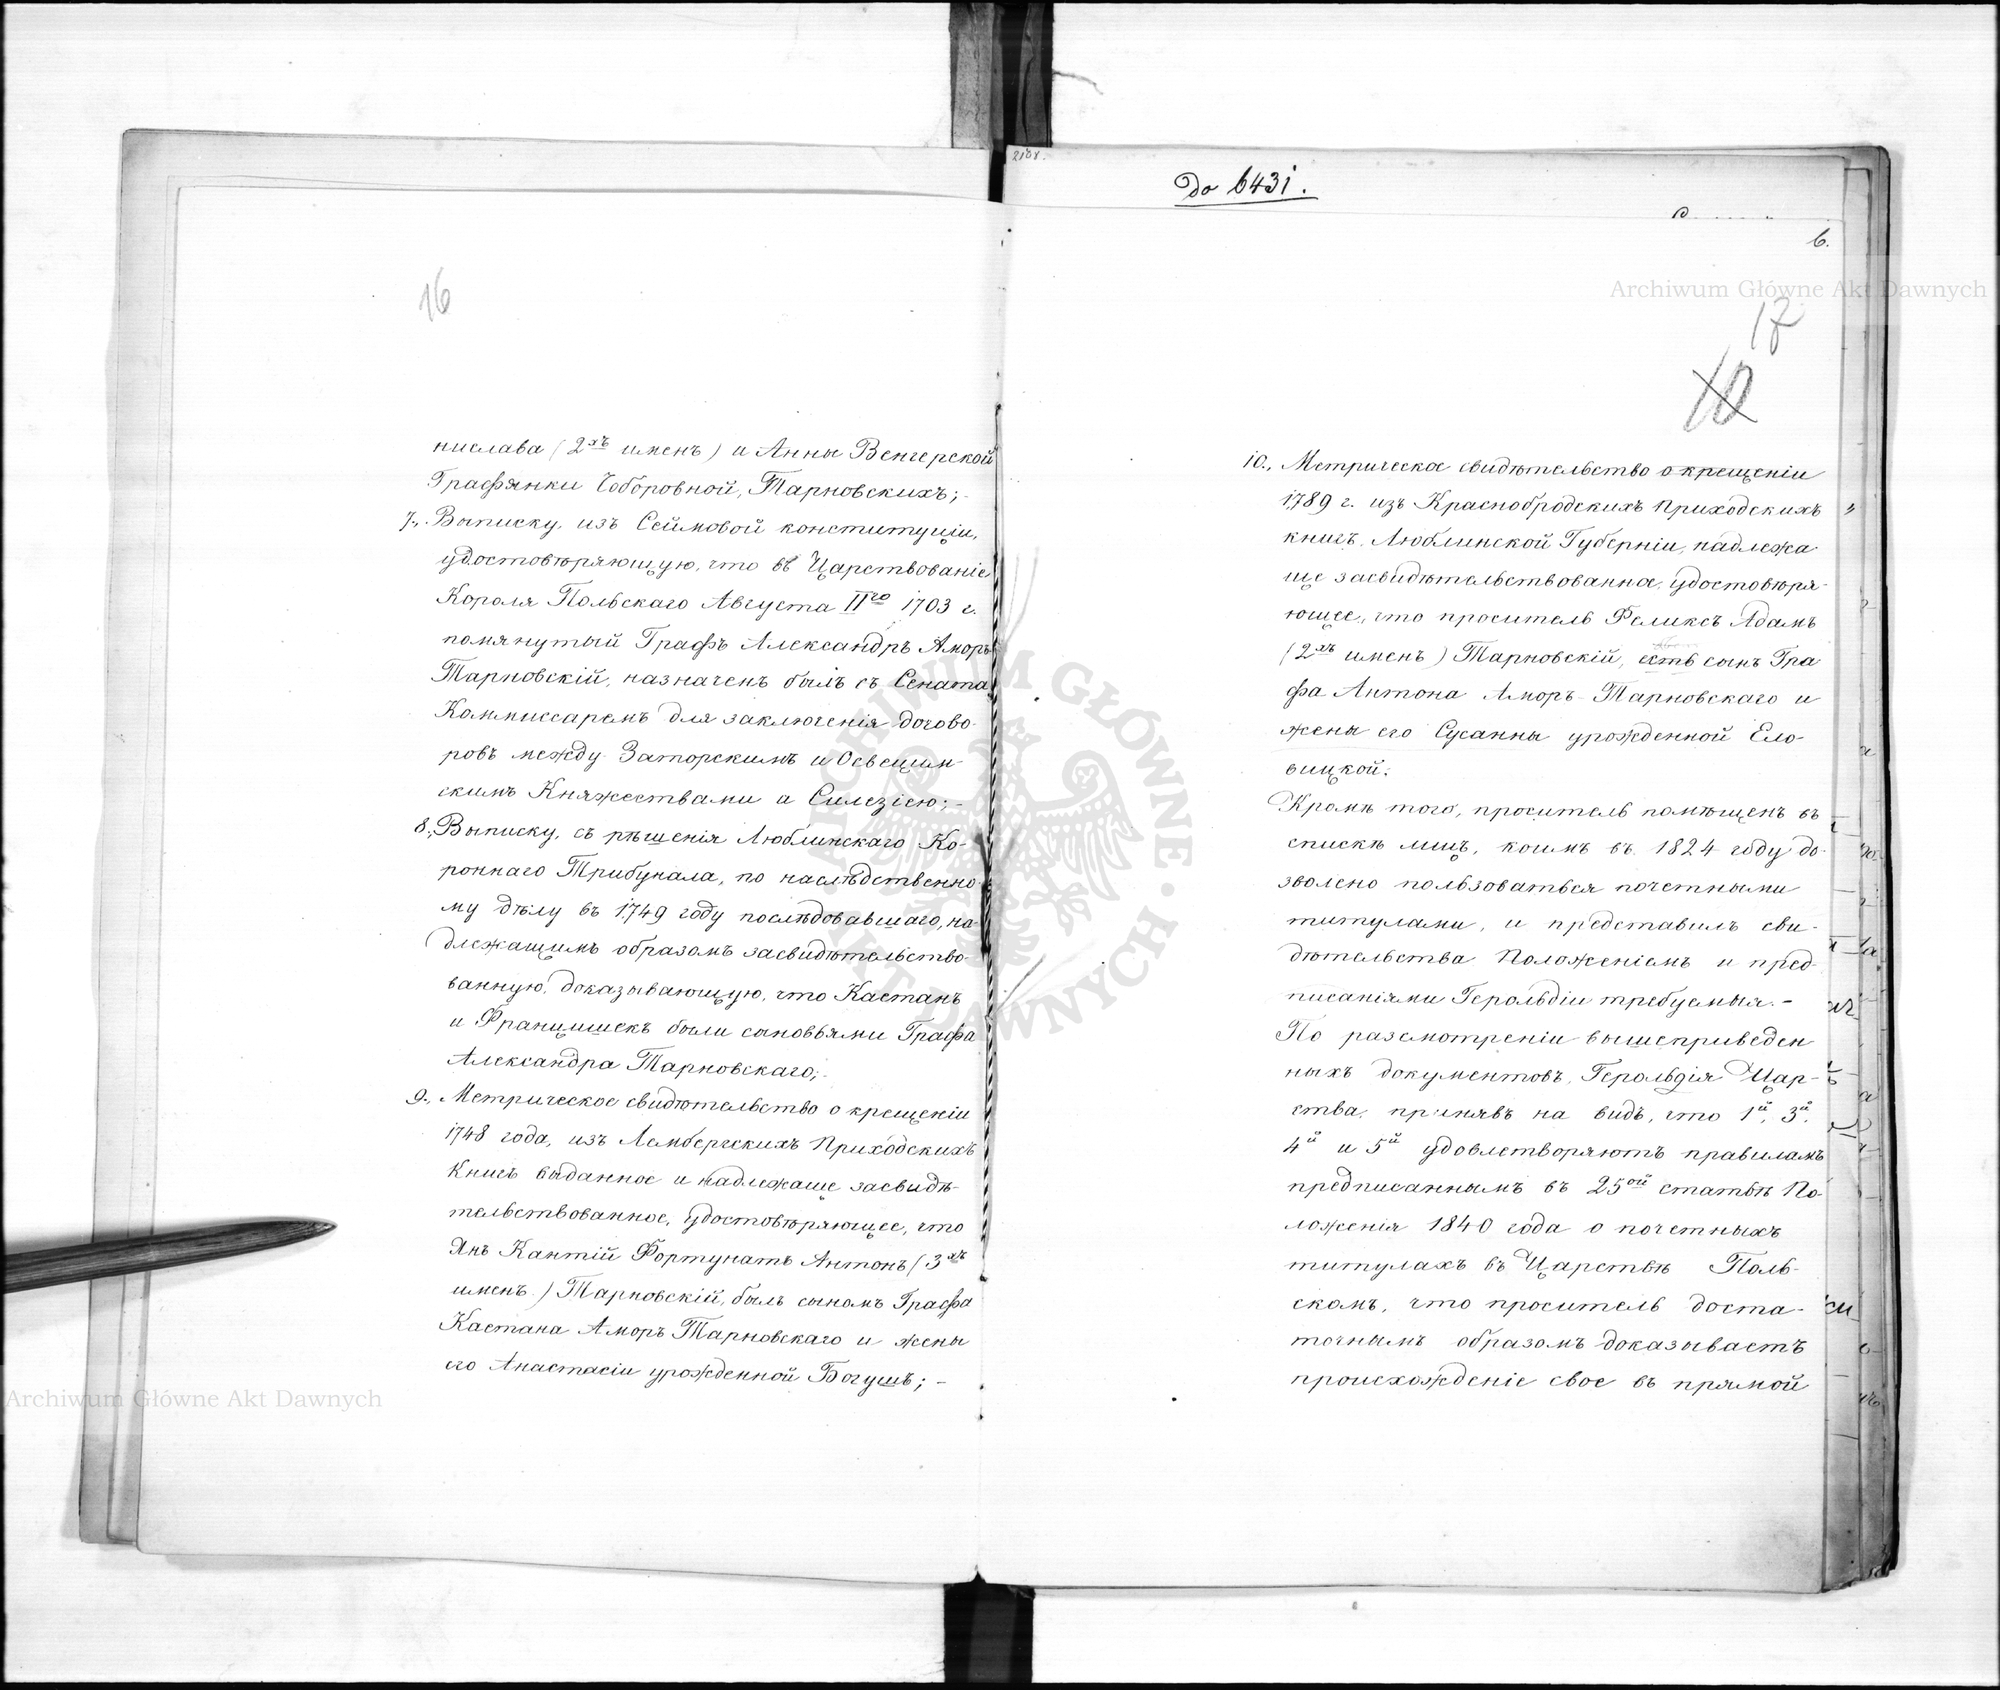 16
нислава (2хъ именъ) и Анны Венгерской
Графянки Соборовной, Тарновскихъ;-
7., Выписку, изъ Сеймовой конституціи,
удостовѣряющую, что въ Царствованіе
Короля Польскаго Августа IIго 1703 г.
помянутый Графъ Александръ Аморъ
Тарновскій, назначенъ былъ съ Сената
Коммиссаремъ для заключенія догово-
ровъ между Заторскимъ и Освецим-
скимъ Княжествами а Силезіею;-
8., Выписку, съ рѣшенія Люблинскаго Ко-
роннаго Трибунала, по наслѣдственно-
му дѣлу въ 1749 году послѣдовавшаго, на-
длежащимъ образомъ засвидѣтельство-
ванную, доказывающую, что Каетанъ
и Францишекъ были сыновьями Графа
Александра Тарновскаго;-
9., Метрическое свидѣтельство о крещеніи
1748 года, изъ Лембергскихъ Приходскихъ
Книгъ выданное и надлежаще засвидѣ-
тельствованное, удостовѣряющее, что
Янъ Кантій Фортунатъ Антонъ (3хъ
именъ) Тарновскій, былъ сыномъ Графа
Каетана Аморъ Тарновскаго и жены
его Анастасіи урожденной Богушъ; -
До 6431.
6.
17
10
10., Метрическое свидѣтельство о крещеніи
1789 г. изъ Краснобродскихъ Приходскихъ
книгъ, Люблинской Губерніи, надлежа-
ще засвидѣтельствованное, удостовѣря-
ющее, что проситель Феликсъ Адамъ
(2хъ именъ) Тарновскій, есть сынъ Гра
фа Антона Аморъ-Тарновскаго и
жены его Сусанны урожденной Ело-
вицкой.
Кромѣ того, проситель помѣщенъ въ
спискѣ лицъ, коимъ въ 1824 году до-
зволено пользоваться почетными
титулами, и представилъ сви-
дѣтельства Положеніемъ и пред-
писаніями Герольдіи требуемыя.-
По разсмотреніи вышеприведен
ныхъ документовъ, Герольдія Цар-
ства, принявъ на видъ, что 1й, 3й,
4й и 5й удовлетворяютъ правиламъ
предписаннымъ въ 25ой статьѣ По-
ложенія 1840 года о почетныхъ
титулахъ въ Царствѣ Поль-
скомъ, что проситель доста-
точнымъ образомъ доказываетъ
происхожденіе свое въ прямой
Archiwum Główne Akt Dawnych
Archiwum Główne Akt Dawnych
ARCHIWUM GŁÓWNE AKT DAWNYCH